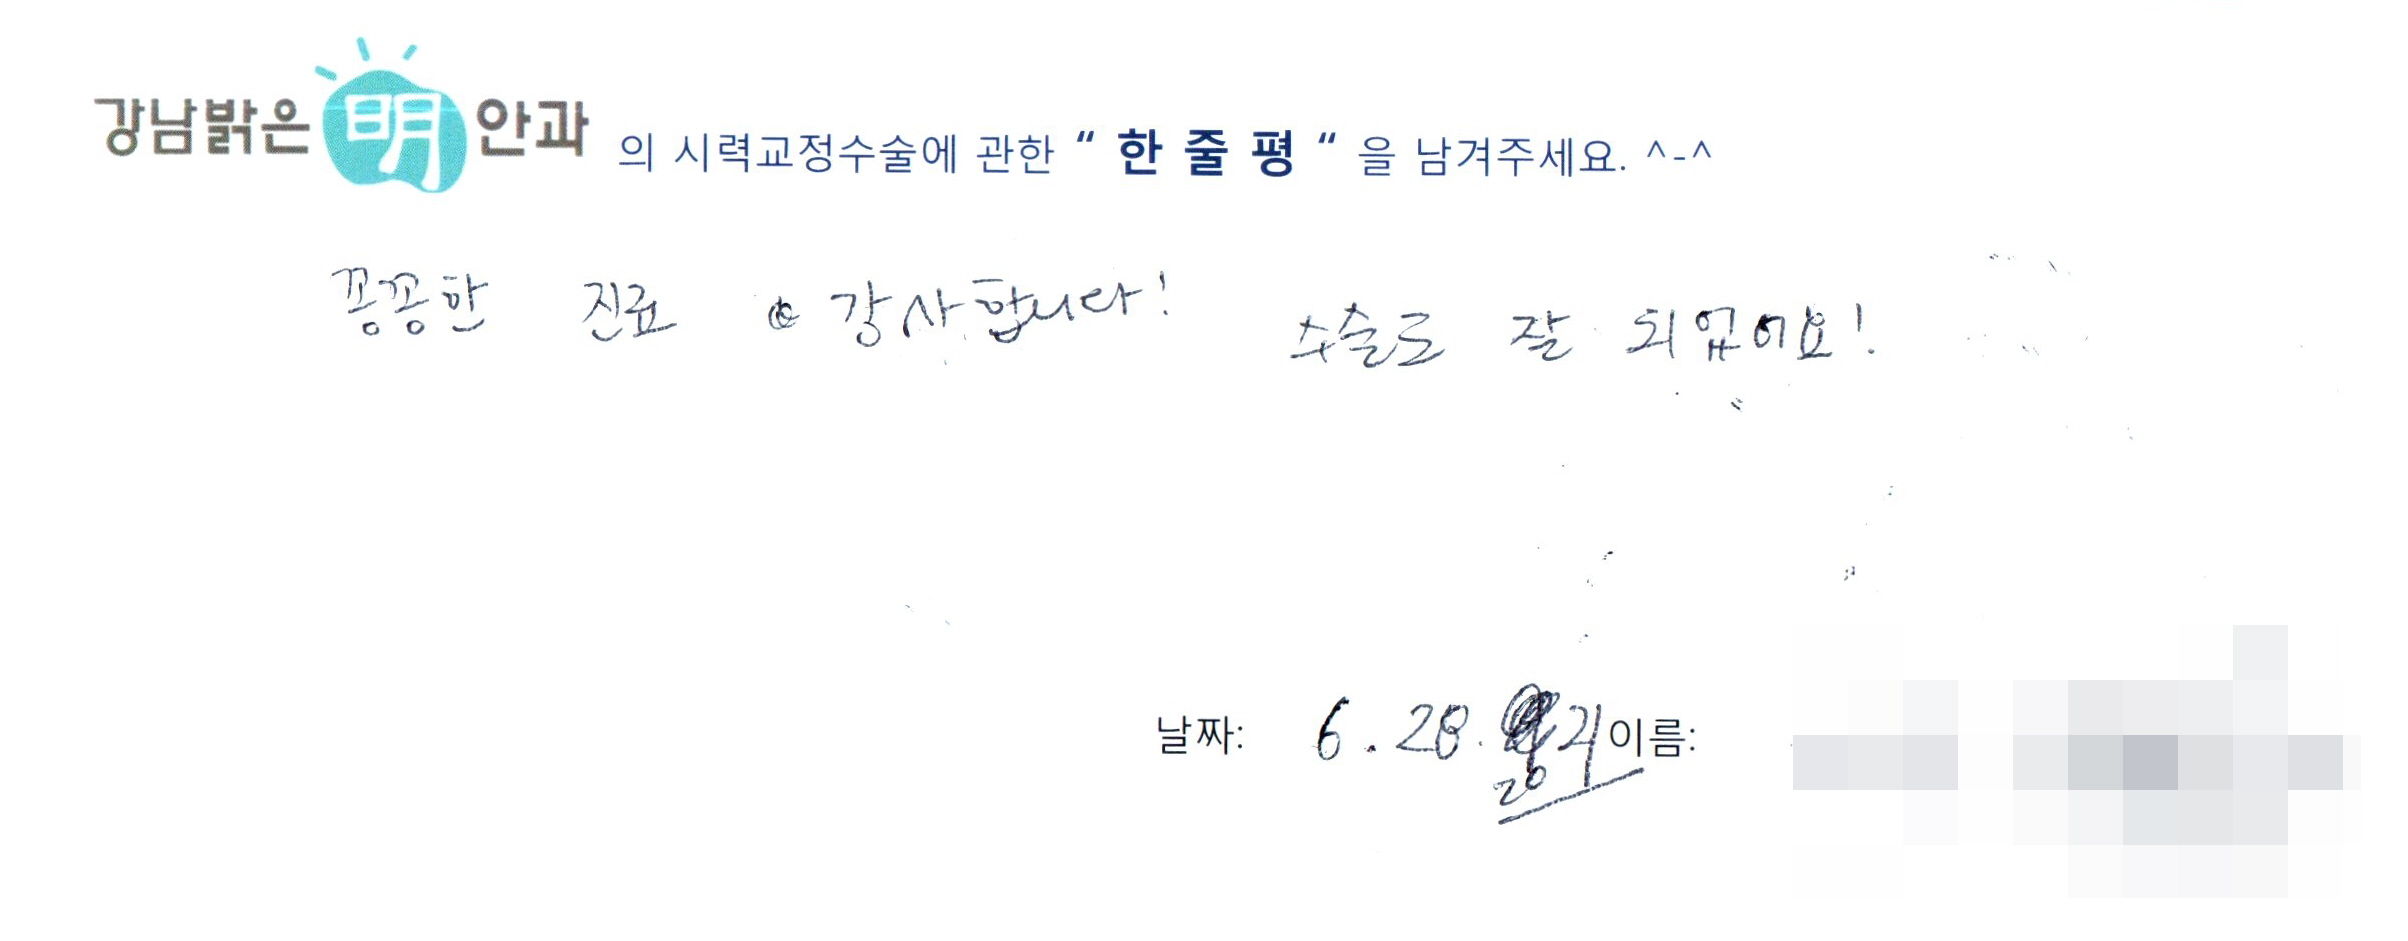 강남밝은 明 안과 의 시력교정수술에 관한 “ 한 줄 평 “ 을 남겨주세요. ^-^
꽁꽁한 진료 감사합니다! 수술도 잘 되었어요!
날짜: 6. 28. 이름: